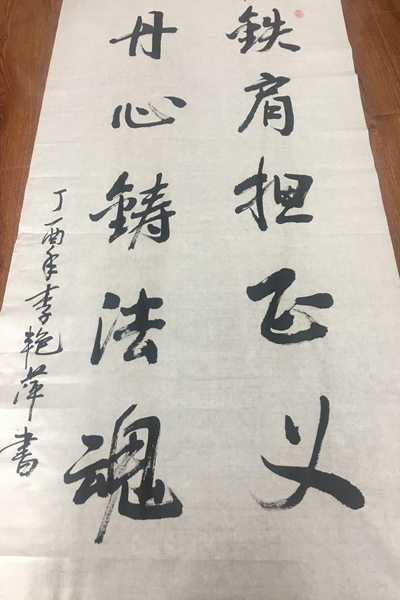 鉄肩担正义
丹心鋳法魂
丁酉年李艳萍书